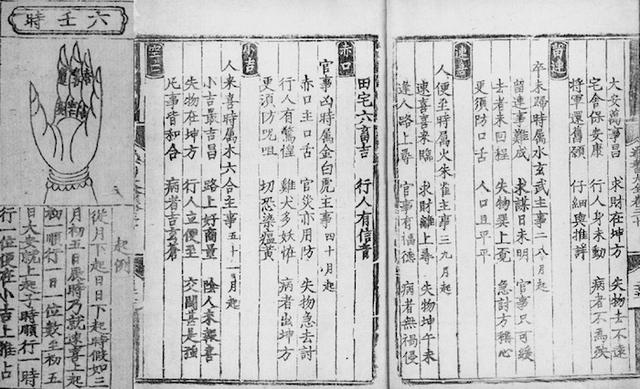 留連
大安萬事昌 求財在坤方 失物去不遠
宅舍保安康 行人身未動 病者不為殃
將軍還舊願 仔細與推詳
卒未歸時屬水玄武主事二八月起
留連事難成 求謀日未明 官事只可緩
去者未回程 失物巽上覓 急討方稱心
更須防口舌 人口且平平
速喜
人便至時屬火朱雀主事三九月起
速喜喜來臨 求財離上尋 失物坤午未
逢人路上尋 官事有福德 病者無禍侵
田宅六畜吉 行人有信音
赤口
官事凶時屬金白虎主事四十月起
赤口主口舌 官災亦用防 失物急去討
行人有驚惶 雞犬多妖怪 病者出坤方
更須防咒咀 切恐染瘟黃
小吉
人來喜時屬木六合主事五十一月起
小吉最吉昌 路上好商量 陰人來報喜
失物在坤方 行人立便至 交關甚是強
凡事皆和合 病者吉 蒼
空亡
六壬時
起例
從月下起日日下起時假如三
月初五日辰時乃就速喜上起
初 順行一日一位數至初五
日大安就上起子時順行一時
行一位便在小吉上推占